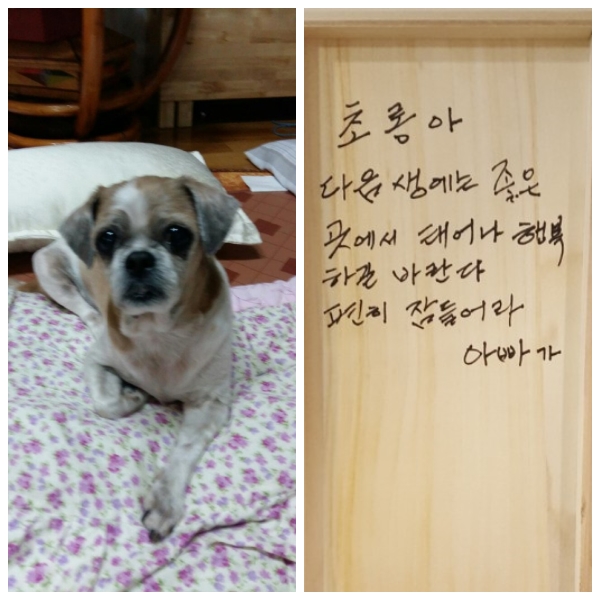 초롱아
다음 생에는 좋은
곳에서 태어나 행복
하길 바란다
편히 잠들어라
아빠가